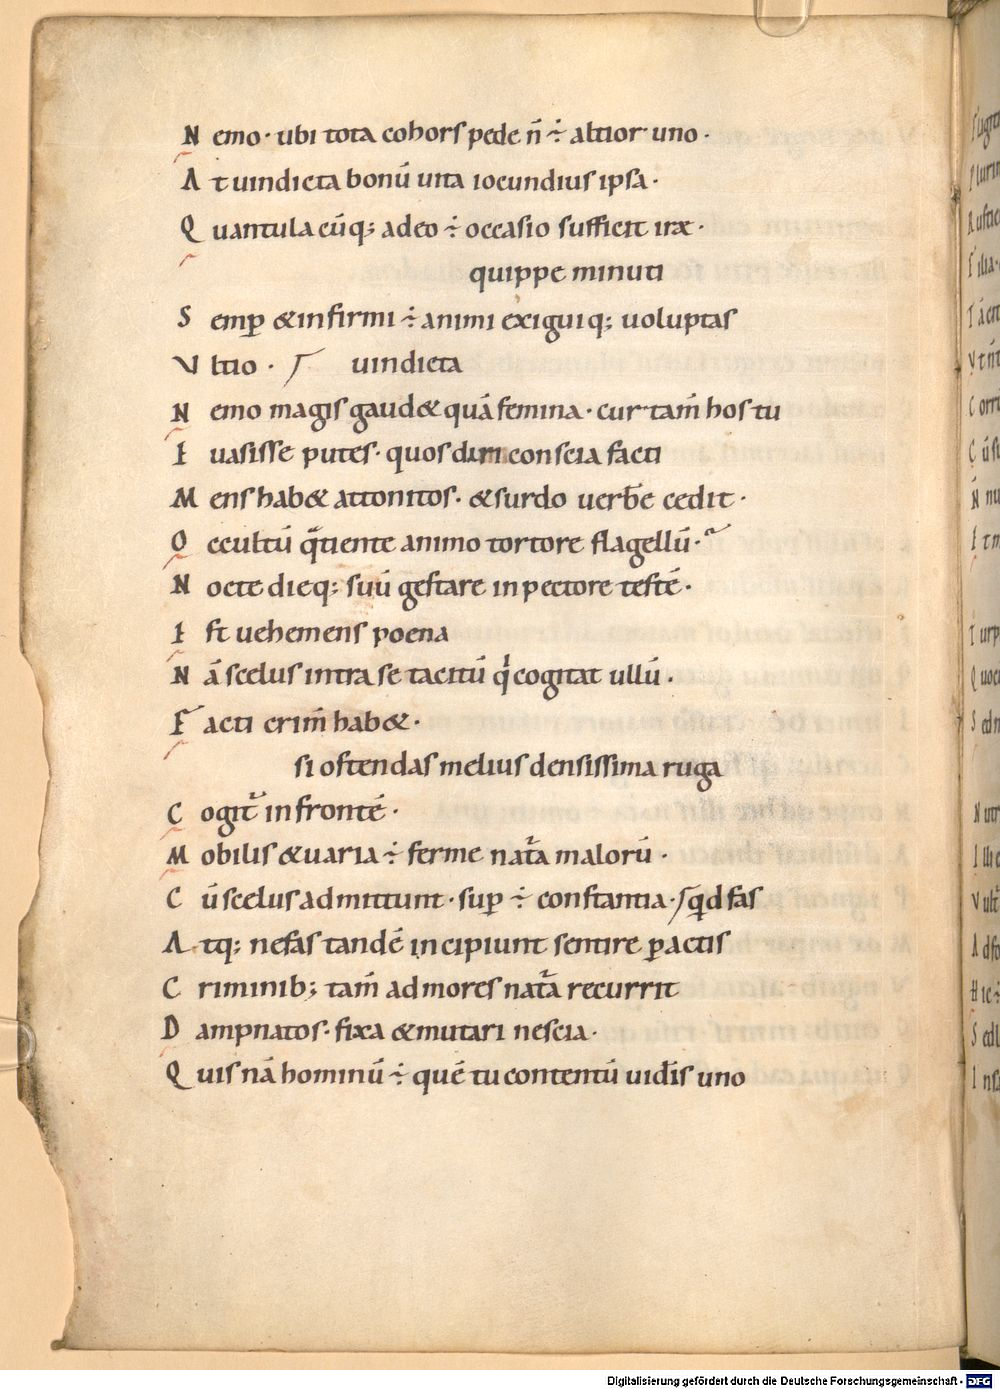 N emo · ubi tota cohors pede n̄ ÷ altior uno ·
A t uindicta bonū uita iocundius ipsa ·
Q uantulacūq; adeo ÷ occasio sufficit iræ ·
quippe minuti
S emꝑ &infirmi ÷ animi exiguiq; uoluptas
V ltio · uindicta
N emo magis gaud& quā femina · cur tam̄ hos tu
E uasisse putes · quos diri conscia facti
M ens hab& attonitos · &surdo uerƀe cedit ·
O ccultū q̄tiente animo tortore flagellū ·
N octe dieq; suū gestare in pectore testē ·
E st uehemens poena
N ā scelus intra se tacitū qͥ cogitat ullū ·
F acti crim̄ hab& ·
si ostendas melius densissima ruga
C ogit᷑ in frontē ·
M obilis &uaria ÷ ferme nat᷑a malorū ·
C ū scelus admittunt · suꝑ ÷ constantia · / qͥd fas
A tq; nefas tandē incipiunt sentire ꝑactis
C riminib; tam̄ ad mores nat᷑a recurrit
D ampnatos · fixa &mutari nescia ·
Q uis nā hominū ÷ quē tu contentū uid̄is uno
Digitalisierung gefördert durch die Deutsche Forschungsgemeinschaft - DFG